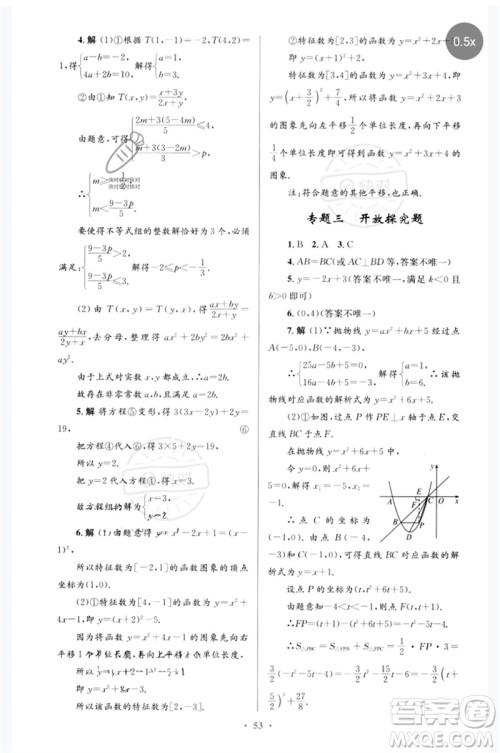 0.5x
4. 解 (1)由题意,得 T(1,-1)=-2,T(4,2)=
1.得{a-b=-2, 4a+2b=6. 解得{a=1, b=3.
②由①知 T(x,y)=(x+3y)/(2x+y),
由题意,可得{(2m+3(5-4m))/… ≤4, (m+3(3-2m))/… >p,
要使得不等式组的整数解恰好有
满足:{(9-3p)/5 …, (9-3p)/5 ≤ … 解得-2≤p<-1/3.
(2)由 T(x,y)=T(y,x),得 (ax+by)/(2x+y)=
(ay+bx)/(2y+x),去分母,整理得 ax²+2by²=2bx²+
ay².
由于上式对实数 x,y 都成立,所以 a=2b.
故存在非零常数 a,b,且满足 a=2b.
5. 解 将方程⑤变形,得 3(3x-2y)+2y=
19, ⑥
把方程④代入⑥,得 3×5+2y=19.
所以 y=2.
把 y=2 代入方程④,得 x=3.
故方程组的解为{x=3, y=2.
6. 解 (1)由题意得 y=x²-2x+1=(x-
1)²,
所以特征数为[-2,1]的函数图象的顶点
坐标为(1,0).
(2)①特征数为[4,-1]的函数为 y=x²+
4x-1,
所以 y=(x+2)²-5.
因为将函数 y=x²+4x-1 的图象先向右
平移1个单位长度,再向上平移1个单位长度,
所以 y=(x+2-1)²-5+1,
即 y=x²+2x-3.
所以该函数的特征数为[2,-3].
②特征数为[2,3]的函数为 y=x²+2x+3,
所以 y=(x+1)²+2.
特征数为[3,4]的函数为 y=x²+3x+4,
即 y=(x+3/2)²+7/4,所以将函数 y=x²+2x+3
的图象先向左平移1/2个单位长度,再向下平移
1/4个单位长度,可得到函数 y=x²+3x+4 的
图象.
注:符合题意的其他平移,也可.
专题三 开放探究题
1. B 2. A 3. C
4. AB=BC(或 AC⊥BD 等)(答案不唯一)
5. y=-x+3(答案不唯一,形如 y=kx+3
(k<0)均可)
6. (0,4)(答案不唯一)
7. 解 (1)∵抛物线 y=ax²+bx+5 经过点
A(-5,0),B(-4,-3),
∴{25a-5b+5=0, 16a-4b+5=-3, 解得{a=1, b=6. ∴该抛物
线对应的函数的解析式为 y=x²+6x+5.
(2)如图,过点 P 作 PE⊥x 轴于点 E,交
直线 BC 于点 F.
在抛物线 y=x²+
6x+5 中,
令 y=0,则 x²+6x+
5=0,
解得 x₁=-5,x₂=
-1.
∴点 C 的坐标为
(-1,0).
由点 B(-4,-3)和
C(-1,0),可得直线 BC 对应的函数的
解析式为 y=x+1.
设点 P 的坐标为(t,t²+6t+5),
由题意知-4<t<-1,则点 F(t,t+1).
∴FP=(t+1)-(t²+6t+5)=-t²-5t-4.
∴S△PBC=S△FPB+S△FPC=1/2·FP·3=
3/2(-t²-5t-4)=-3/2(t+5/2)²+27/8.
A O x y B C E F P
· 53 ·
答案圈
MXQE.COM